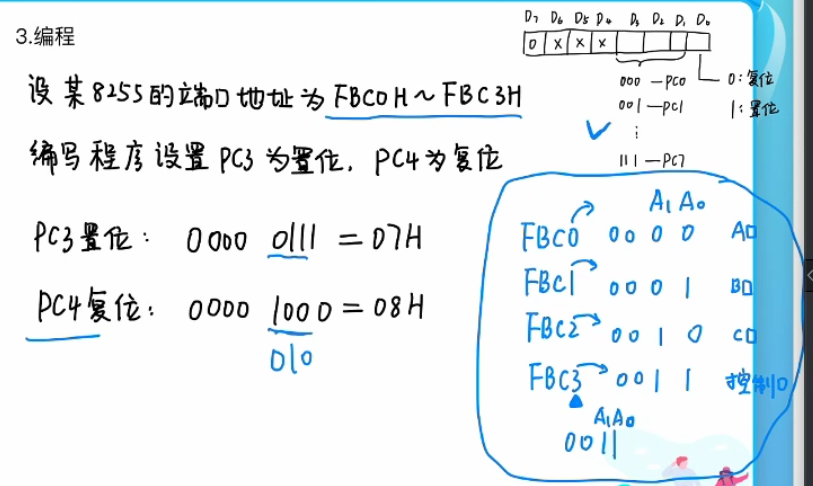 3.编程
设某8255的端口地址为FBC0H～FBC3H
编写程序设置PC3为置位，PC4为复位
PC3置位： 0000 0111 = 07H
PC4复位： 0000 1000 = 08H
010
D7 D6 D5 D4 D3 D2 D1 D0
0 X X X
000 —PC0 0:复位
001 —PC1 1:置位
⋮
111 —PC7
A1 A0
FBC0 00 0 0 A口
FBC1 00 0 1 B口
FBC2 00 1 0 C口
FBC3 00 1 1 控制口
A1A0
0011